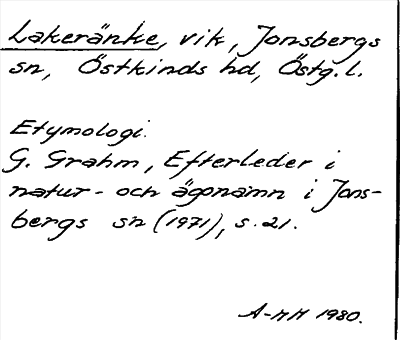 Lakeränke, vik, Jonsbergs
sn, Östkinds hd, Östg.l.
Etymologi.
G. Grahm, Efterleder i
natur- och ägonamn i Jons-
bergs sn (1971), s. 21.
A-MH 1980.